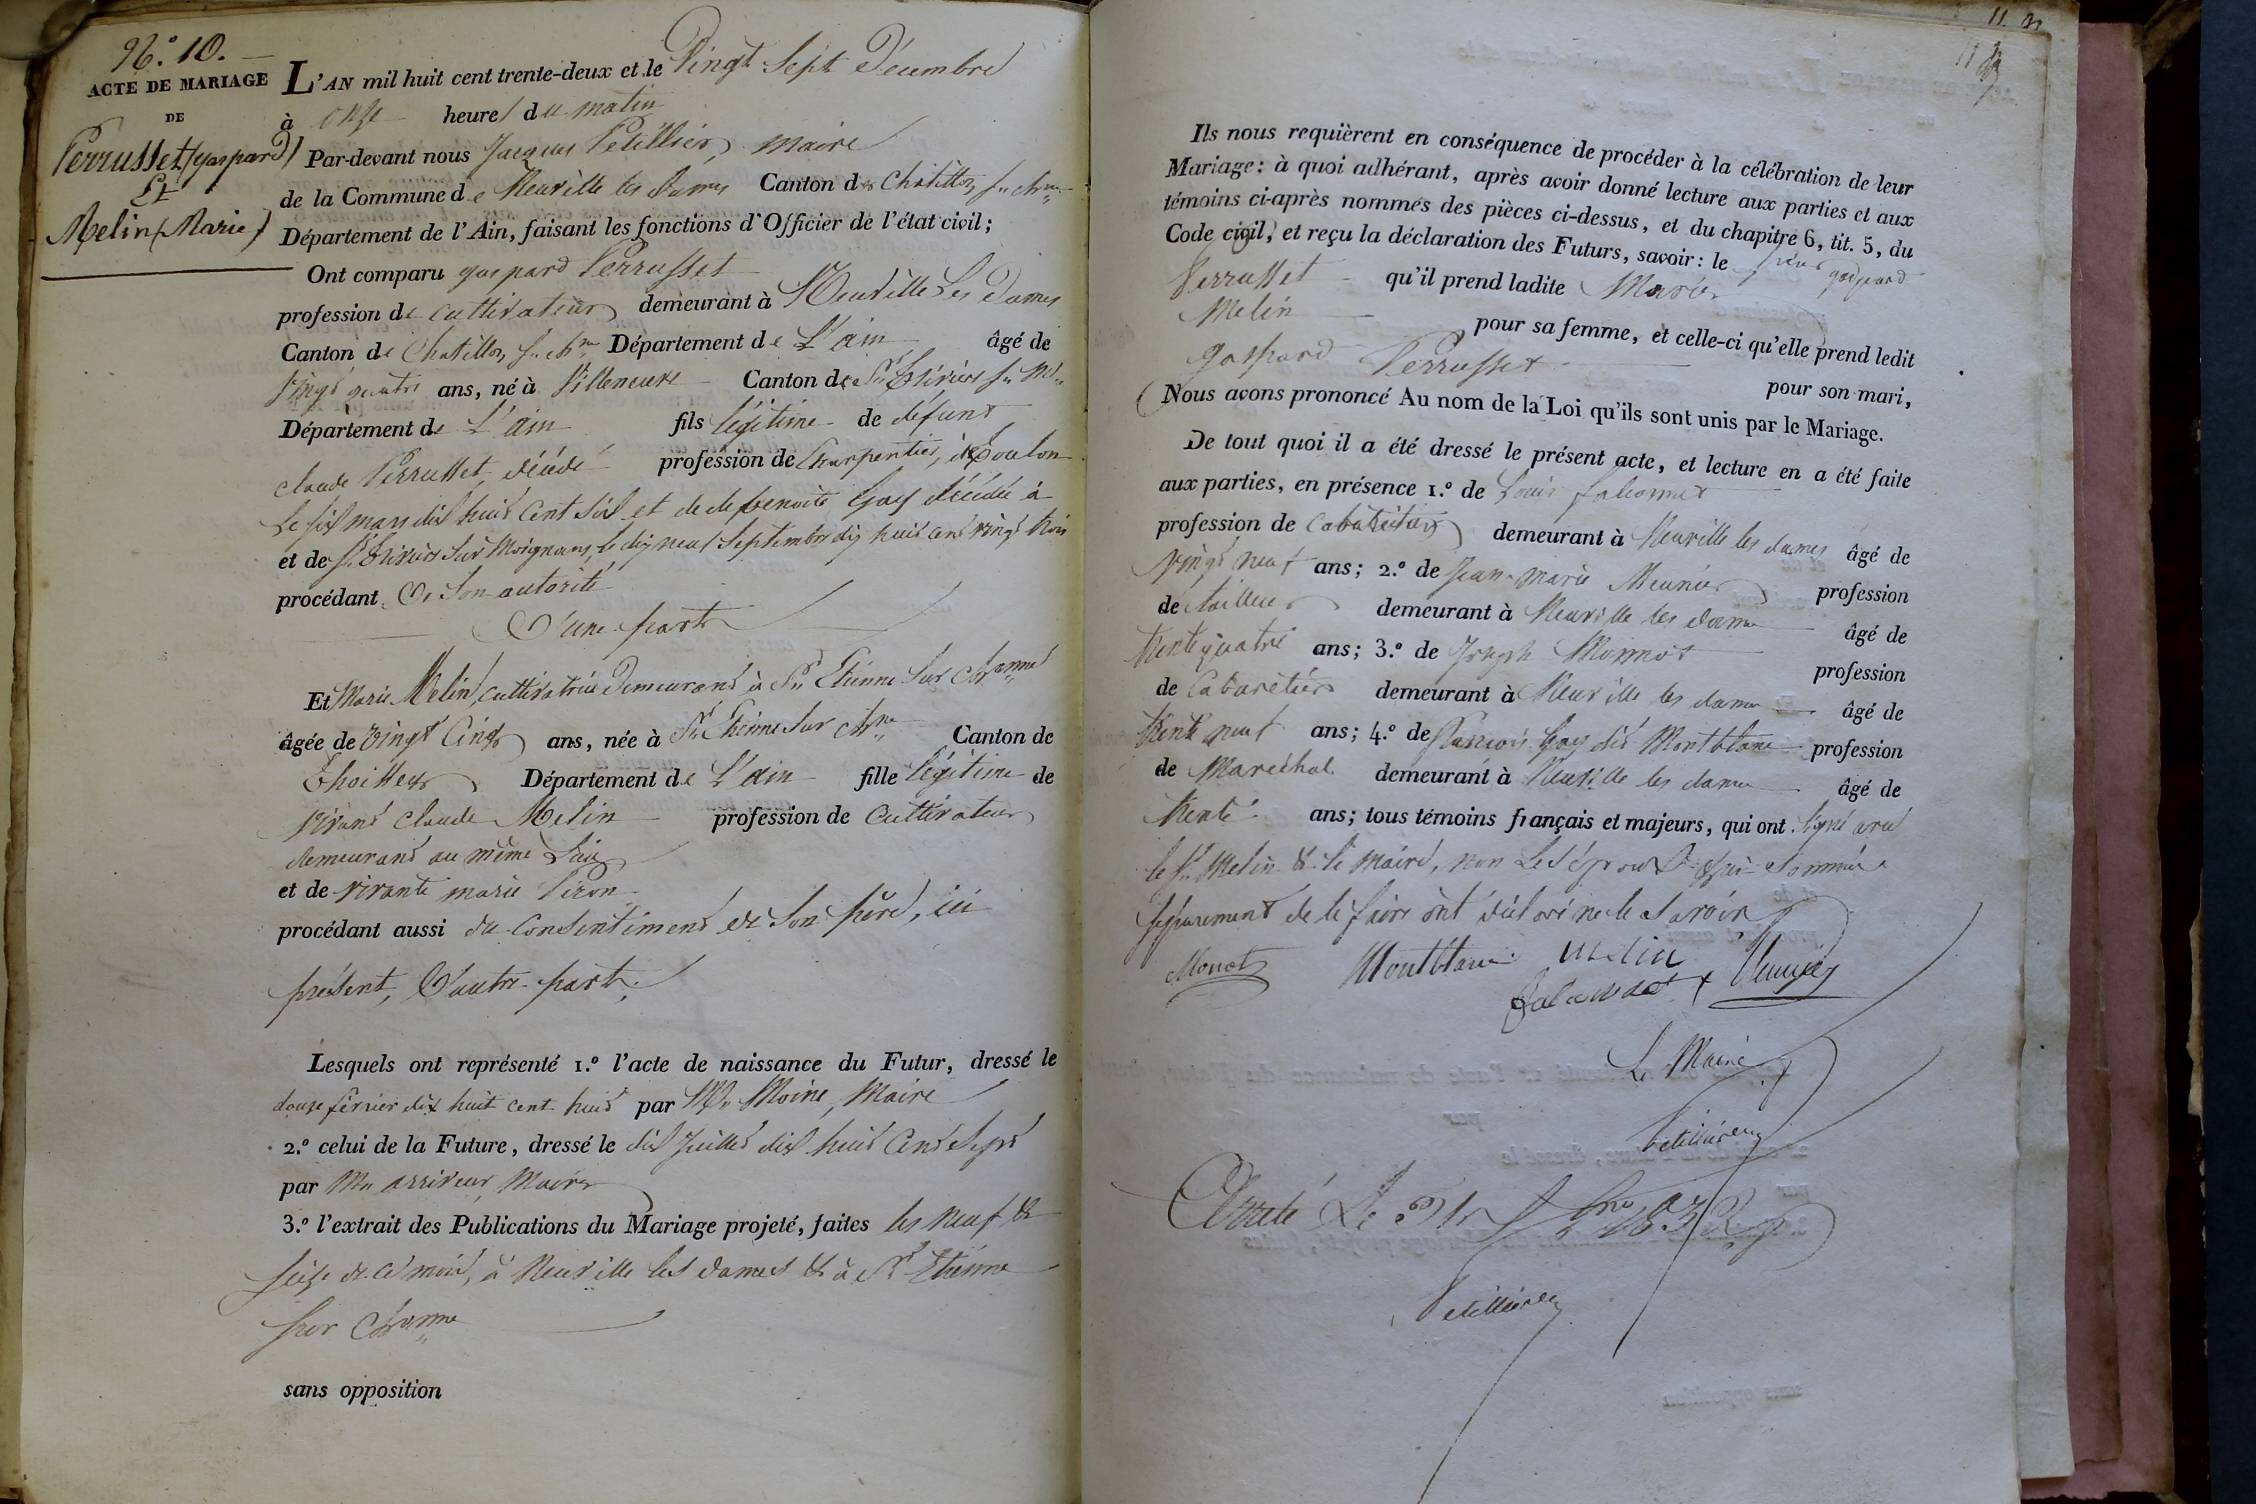 N.º 10.
ACTE DE MARIAGE
DE
Perrusset (gaspard)
Et
Melin (Marie)
L'AN mil huit cent trente-deux et le Vingt Sept Décembre
à onze heures du matin
Par-devant nous Jacques Petillier, maire
de la Commune de Neuville les Dames Canton de Chatillon s.r Ch.nne
Département de l'Ain, faisant les fonctions d'Officier de l'état civil;
Ont comparu gaspard Perrusset
profession de cultivateur demeurant à Neuville Les Dames
Canton de Chatillon s.r Ch.nne Département de L'ain âgé de
vingt quatre ans, né à Villeneuve Canton de S.t Trivier s.r M.
Département de L'ain fils légitime de défunt
claude Perrusset décédé profession de Charpentier, à Toulon
Le six mars dix huit cent six et de benoite Gay décédée à
et de S.t Trivier Sur Moignans, le dix neuf Septembre dix huit cent vingt trois
procédant De Son autorité
D'une part
Et Marie Melin, cultivatrice demeurant à S.t Etienne Sur Ch.aronne
âgée de vingt Cinq ans, née à S.t Etienne Sur Ch.ne Canton de
Thoissey Département de L'ain fille légitime de
vivant claude Melin profession de Cultivateur
demeurant au même Lieu
et de vivante marie Piron
procédant aussi du Consentiment de Son père, ici
présent, D'autre part.
Lesquels ont représenté 1.º l'acte de naissance du Futur, dressé le
douze février dix huit cent huit par M.r Moine, Maire
2.º celui de la Future, dressé le dix Juillet dix huit Cent Sept
par M.r arriveur, Maire
3.º l'extrait des Publications du Mariage projeté, faites les neuf &
seize de ce mois, à Neuville les dames & à S.t Etienne
sur Ch.aronne
sans opposition
11.
Ils nous requièrent en conséquence de procéder à la célébration de leur
Mariage: à quoi adhérant, après avoir donné lecture aux parties et aux
témoins ci-après nommés des pièces ci-dessus, et du chapitre 6, tit. 5, du
Code civil, et reçu la déclaration des Futurs, savoir: le sieur gaspard
Perrusset qu'il prend ladite Marie
Melin pour sa femme, et celle-ci qu'elle prend ledit
gaspard Perrusset pour son mari,
Nous avons prononcé Au nom de la Loi qu'ils sont unis par le Mariage.
De tout quoi il a été dressé le présent acte, et lecture en a été faite
aux parties, en présence 1.º de Louis falconnet
profession de Cabaretier demeurant à Neuville les dames âgé de
vingt neuf ans; 2.º de Jean-marie Meunier profession
de tailleur demeurant à Neuville les dames âgé de
trente quatre ans; 3.º de Joseph Monnot profession
de Cabaretier demeurant à Neuville les dames âgé de
trente neuf ans; 4.º de François Gay dit Montblanc profession
de Maréchal demeurant à Neuville les dames âgé de
trente ans; tous témoins français et majeurs, qui ont signé avec
le S.r Melin & le Maire, non Les époux qui sommés
séparement de le faire ont déclaré ne le Savoir
Monot Montblanc Melin
falconnet Meunier
Le Maire
Petillier
Arrêté Le 31 Xbre 1832
Petillier